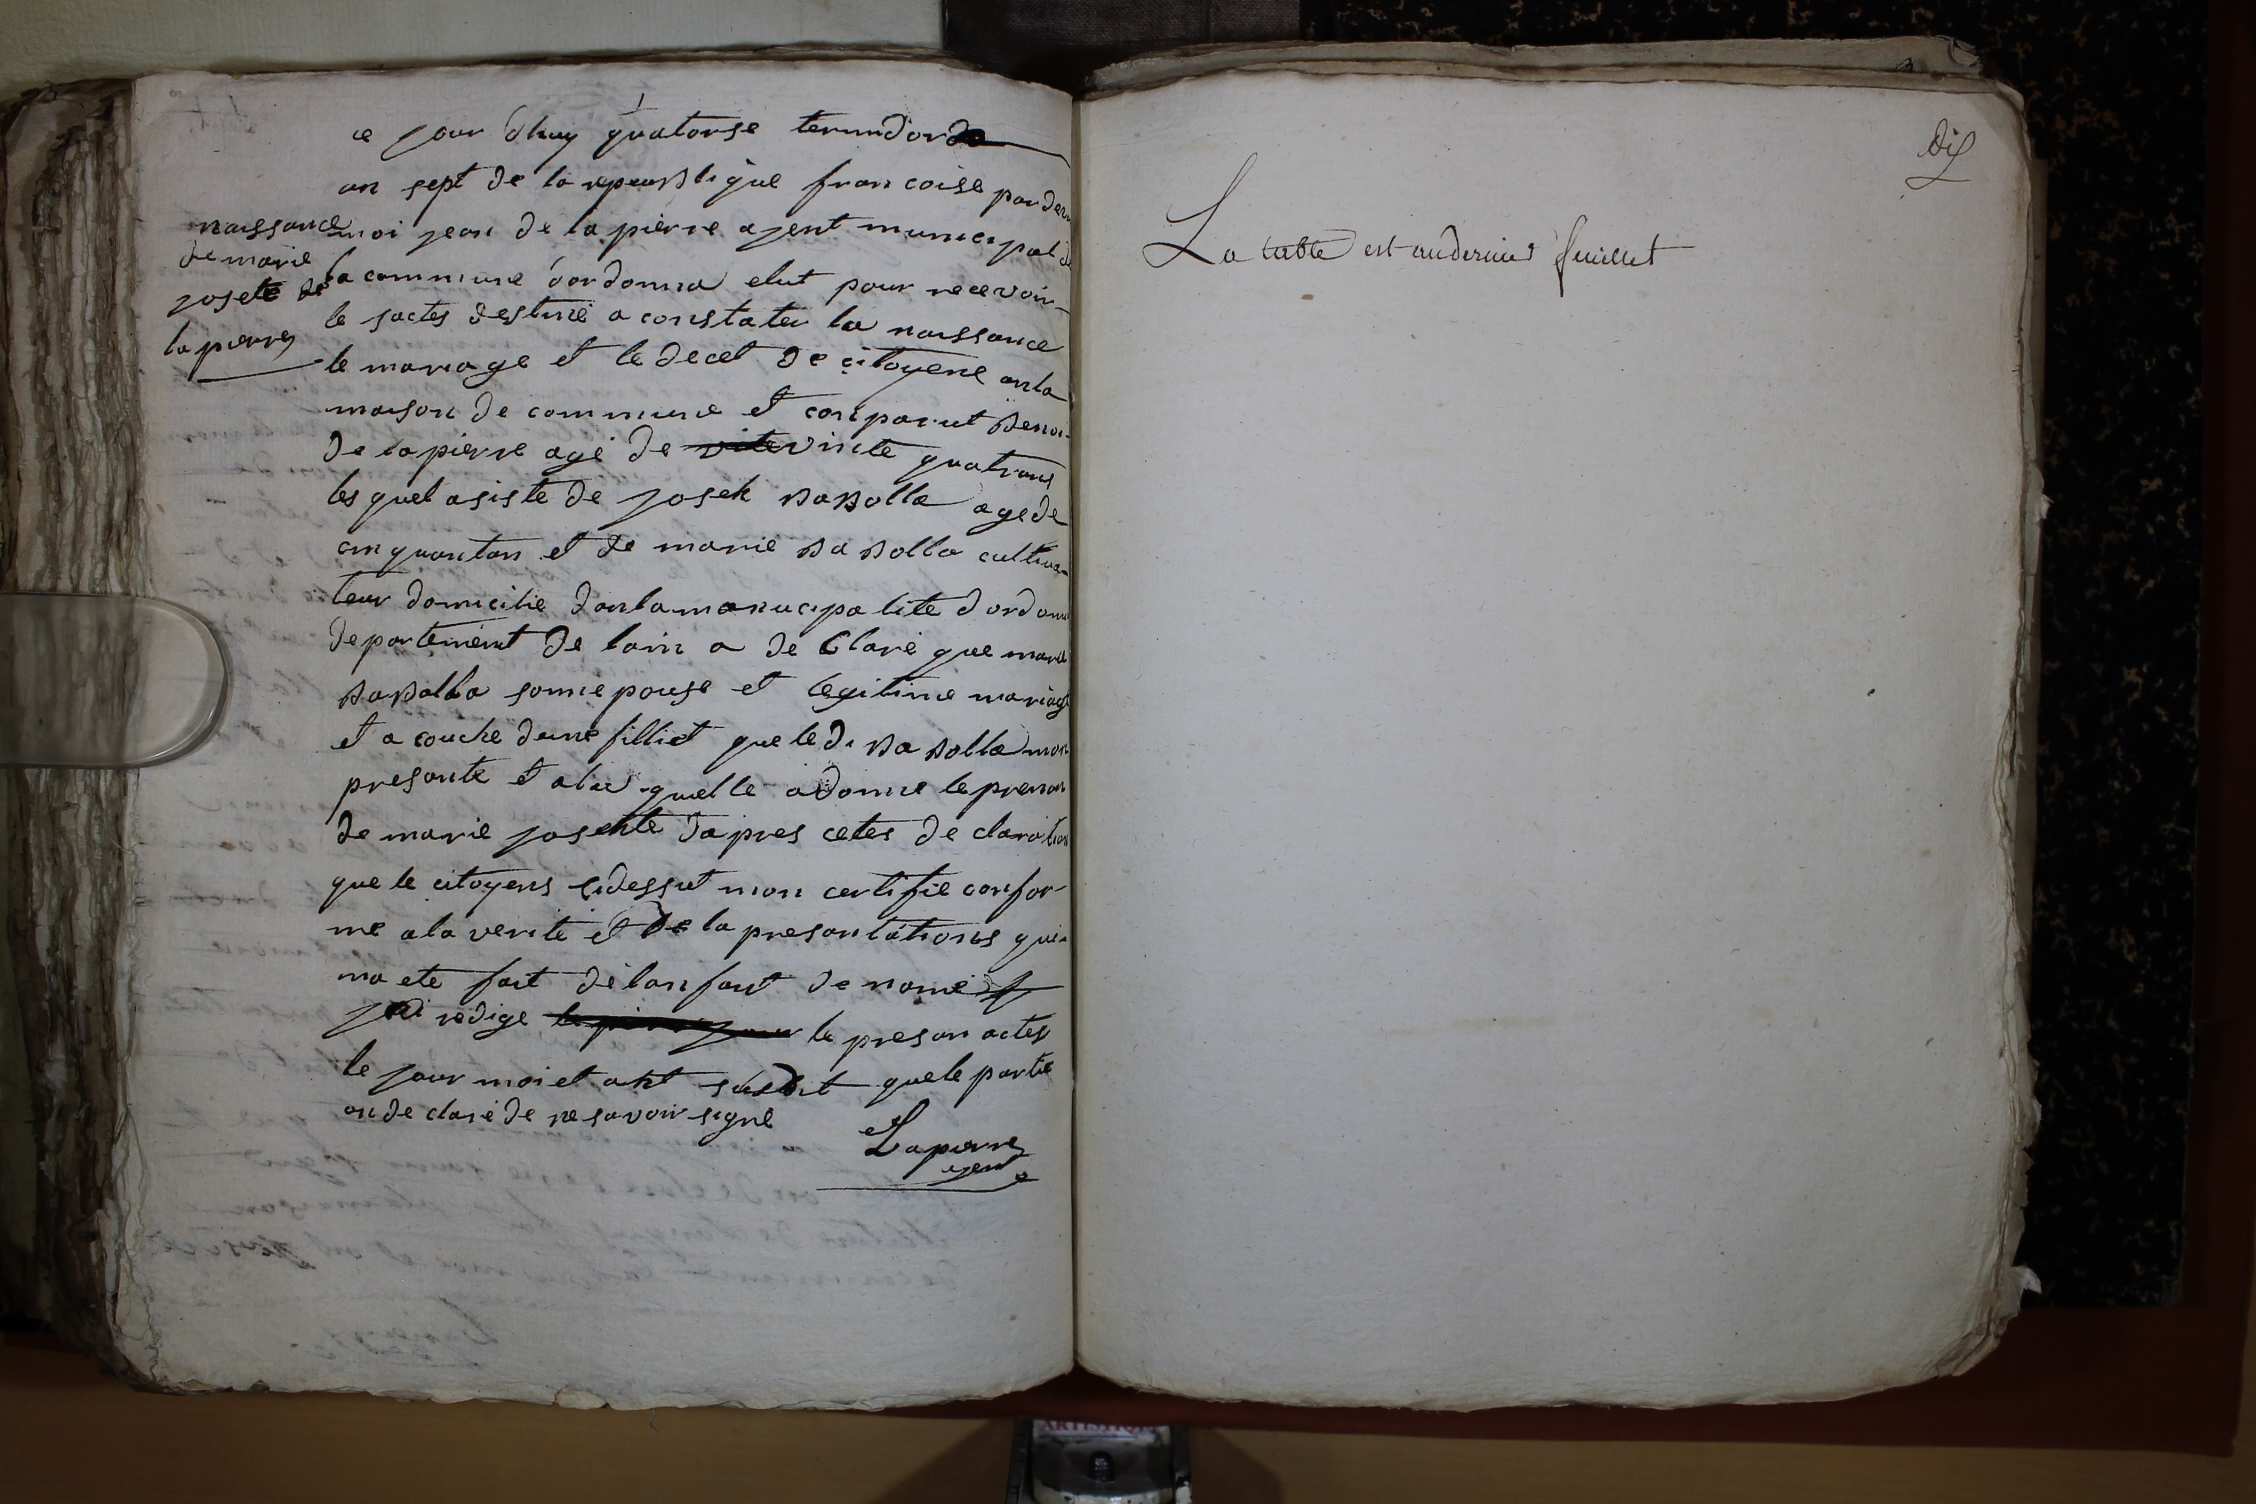 ce jour dhuy quatorse termidor
an sept de la repeublique francoise par de
naissance
de marie
josete de
la pierre
moi jean de la pierre ajent municipal de
la commune dordonna elut pour recevoir
le sactes destiné a constater la naissance
le mariage et le decet de citoyene anla
maison de commune et conparut Benoi
de la pierre agé de vinte quatrans
les quel asiste de josek BaBolla age de
cinquantan et de marie Ba Bolla cultiva
teur domicilie danlamanucipalite dordonn
departement de lain a de Claré que marie
BaBolla sonnepouse et legitime mariage
et a couche dune filliet que ledi Ba Bolla mon
presante et alaquelle adonne le prenon
de marie josehte dapres cetes de claration
que le citoyens cidessut mon certifie confor
me ala verite et de la presantations qui
ma ete fait delanfant de nomé
jai redige le presan actes
le jour moi et ant susdit que le partie
on de claré de ne savoir signé
Lapierre
ajent
dix
La table est audernier feuillet